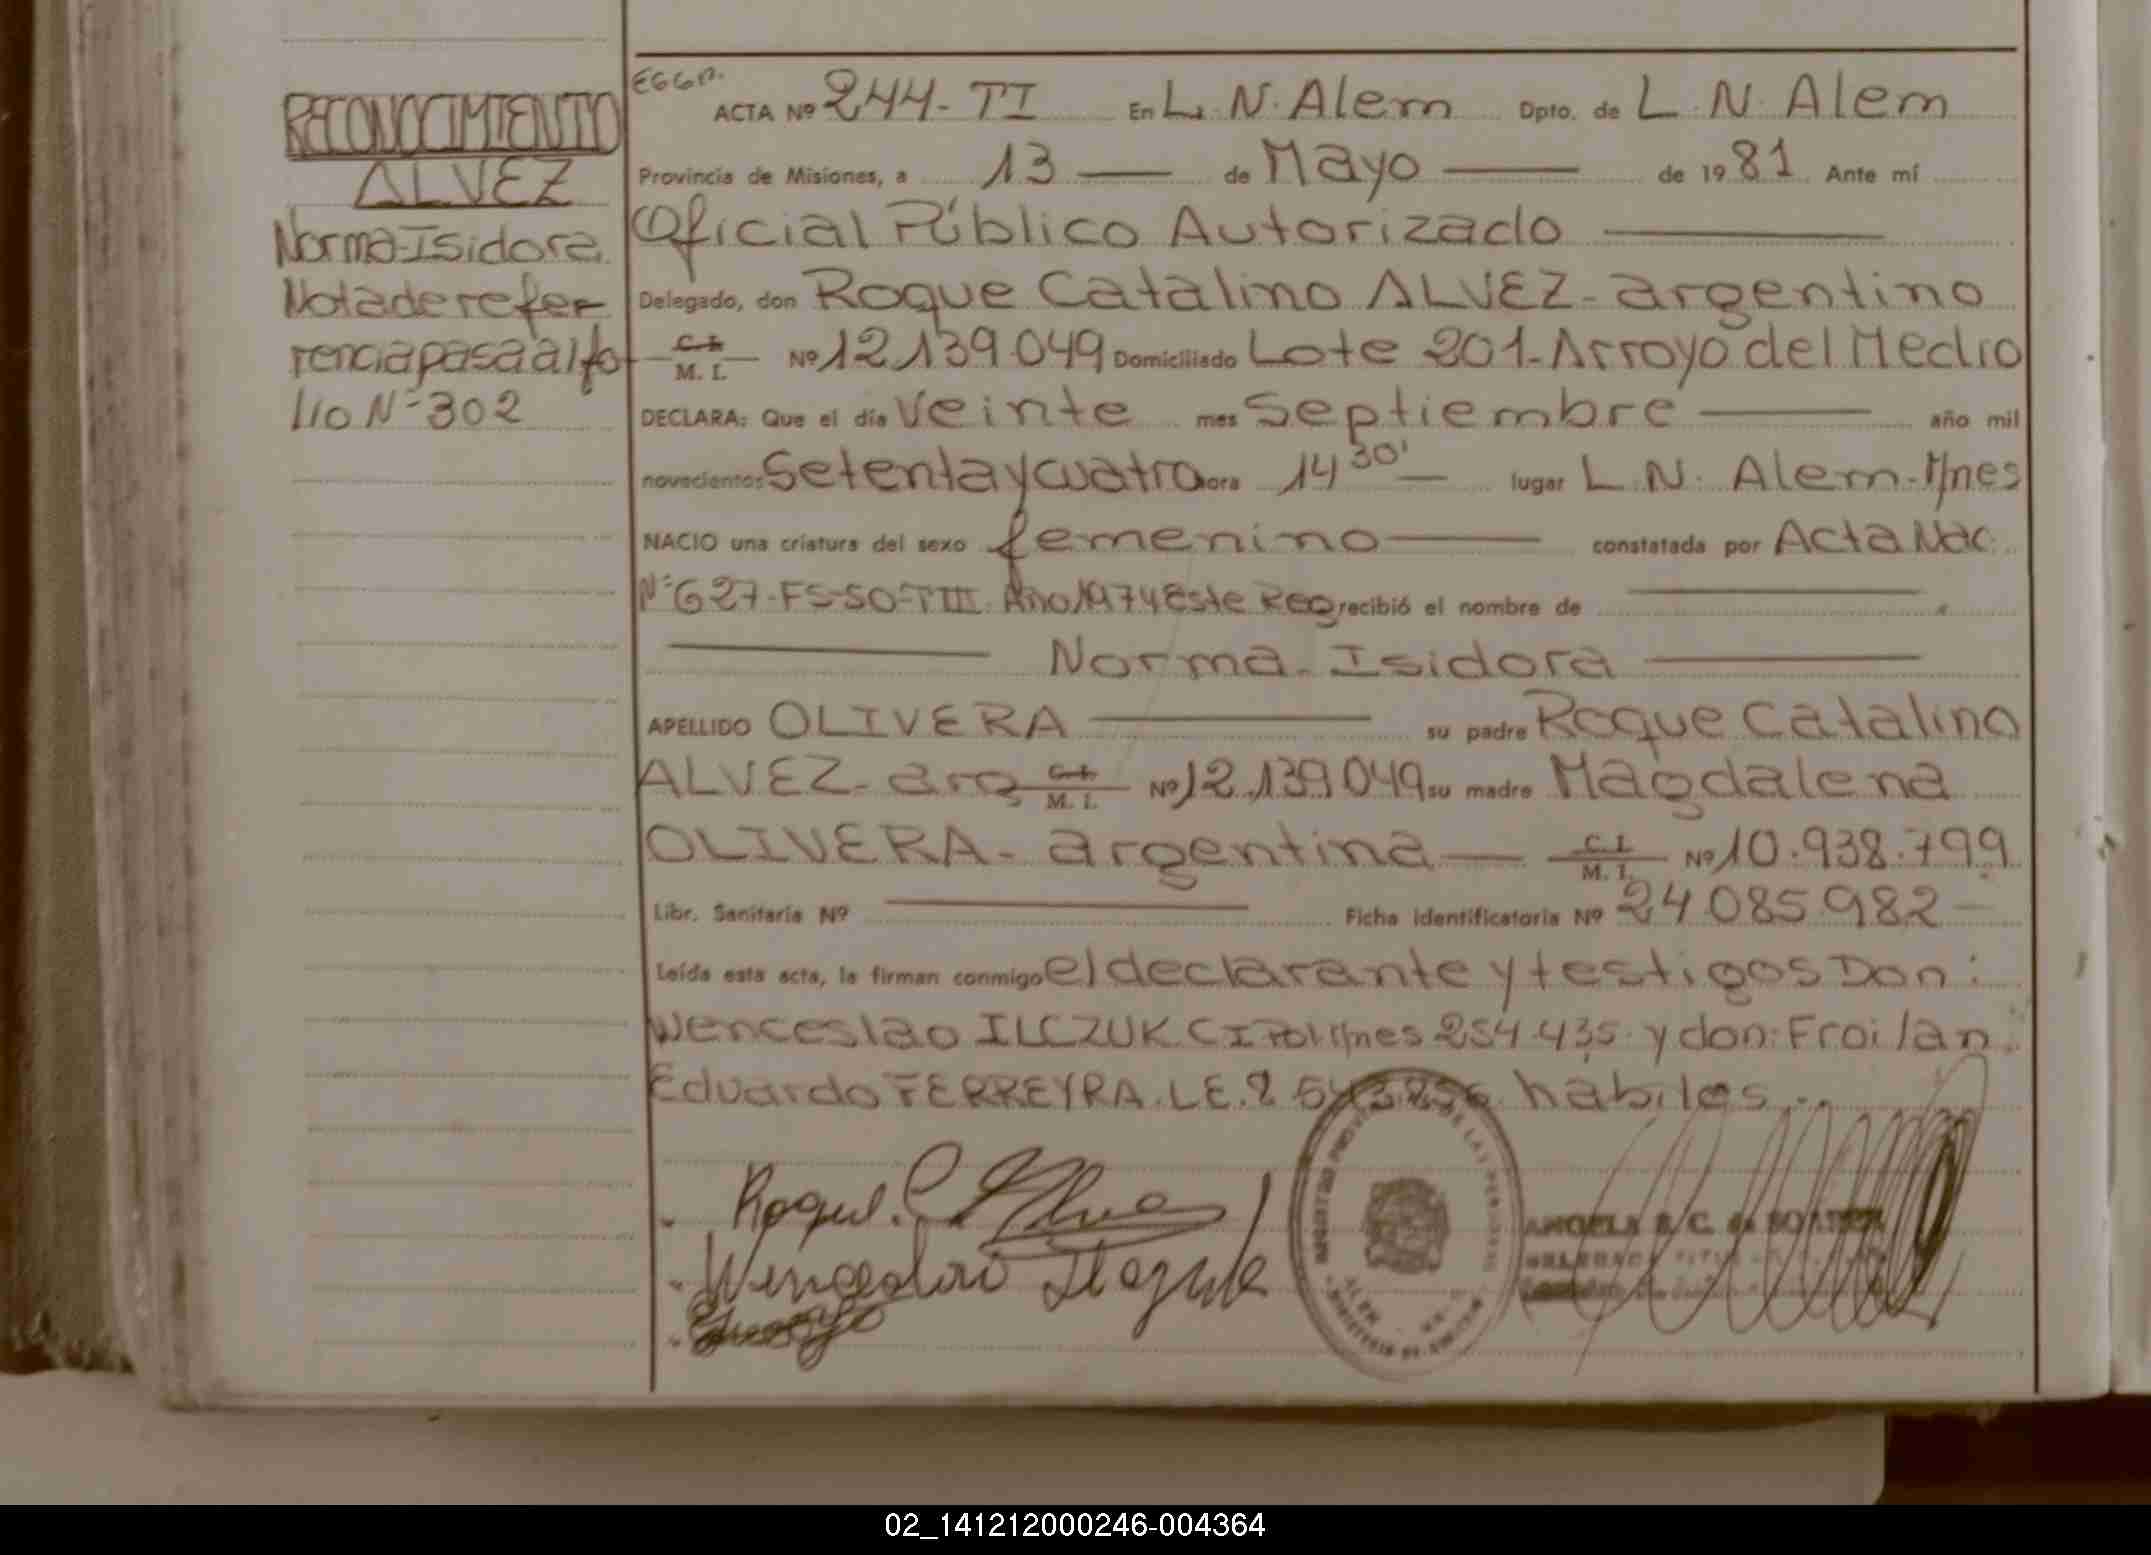 RECONOCIMIENTO
ALVEZ
Norma Isidora
Nota de refer
rencia pasa al fo
lio Nº 302
ACTA Nº 244-TI En L. N. Alem Dpto. de L. N. Alem
Provincia de Misiones, a 13 de Mayo de 1981 Ante mí
Oficial Público Autorizado
Delegado, don Roque Catalino ALVEZ - argentino
C. I. M. I. Nº 12.139.049 Domiciliado Lote 201 - Arroyo del Medio
DECLARA: Que el día veinte mes Septiembre año mil
novecientos Setenta y cuatro hora 14 30' lugar L. N. Alem - Mnes
NACIO una criatura del sexo femenino constatada por Acta Nac.
Nº 627-FS-50-TIII. Año 1974 Este Reg recibió el nombre de
Norma - Isidora
APELLIDO OLIVERA su padre Roque Catalino
ALVEZ - arg C. I. M. I. Nº 12.139.049 su madre Magdalena
OLIVERA - argentina C. I. M. I. Nº 10.938.799
Libr. Sanitaria Nº Ficha Identificatoria Nº 24.085.982
Leída esta acta, la firman conmigo el declarante y testigos Don:
Wenceslao ILCZUK C I Pol Mnes 254.435. y don: Froilan
Eduardo FERREYRA. L.E. habiles..
Roque C. Alvez
Wenceslao Ilczuk
ANGELA
02_141212000246-004364